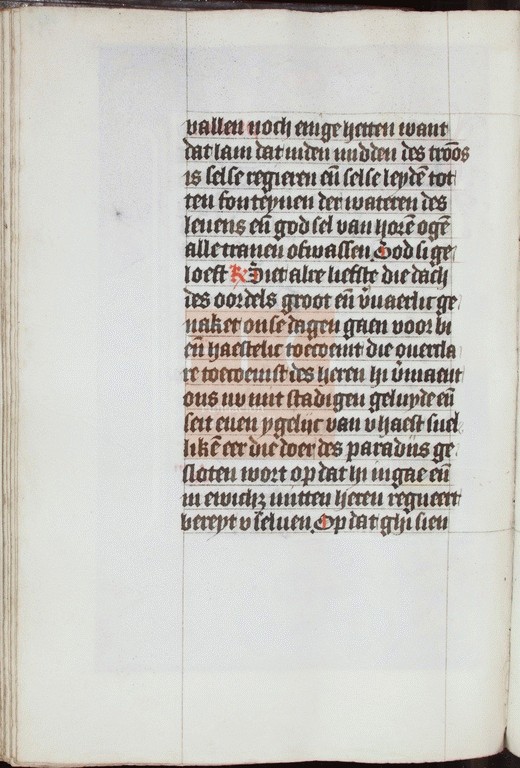 vallen noch enige hetten want
dat lam dat inden midden des troos
is sel se regieren eñ sel se leydē tot
ten fonteynen der wateren des
leuens eñ god sel van horē ogē
alle tranen ofwassen God si ge
loeft Siet alre liefste die dach
des oordels groot eñ v̄uaerlic ge
naket onse dagen gaen voor bi
eñ haestelic toecoemt die ouercla
re toecoemst des heren hi v̄maent
ons nv mit stadigen geluyde eñ
seit euen ygelijc van v haest snel
likē eer die doer des paradijs ge
sloten wort op dat hi in gae eñ
in ewichꝫ mitten heren regneert
bereyt v seluen Op dat ghi sien